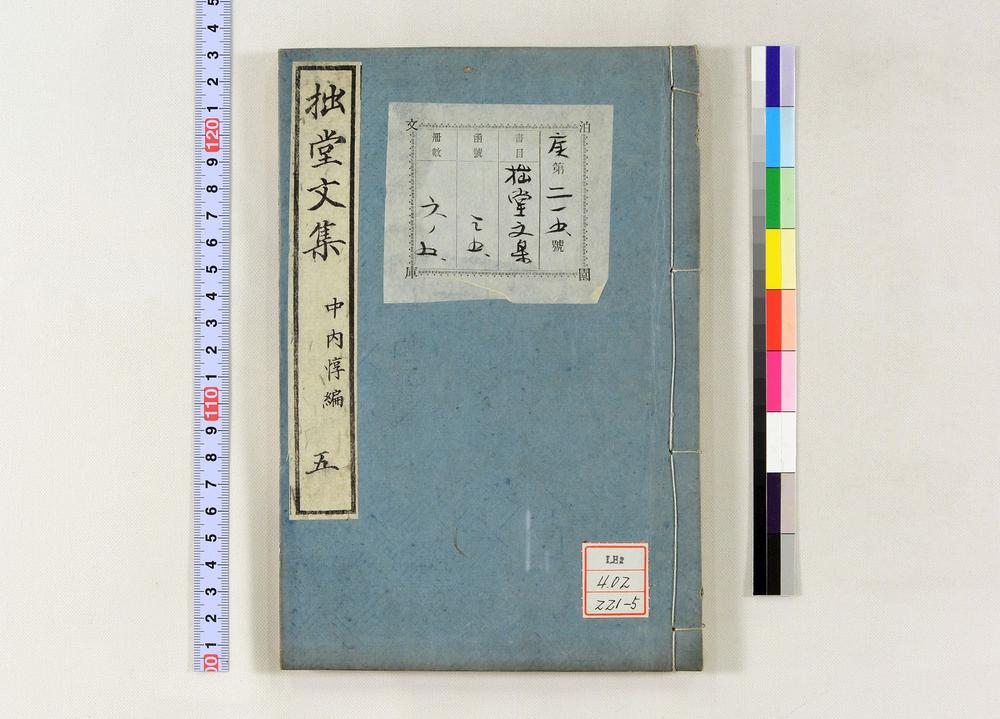 拙堂文集
中内惇編
五
泊園文庫
庋第二一五號
書目
拙堂文集
函號
三五、
冊數
六ノ五、
LH2
4.02
221-5
5
4
3
2
1
120
9
8
7
6
5
4
3
2
1
110
9
8
7
6
5
4
3
2
1